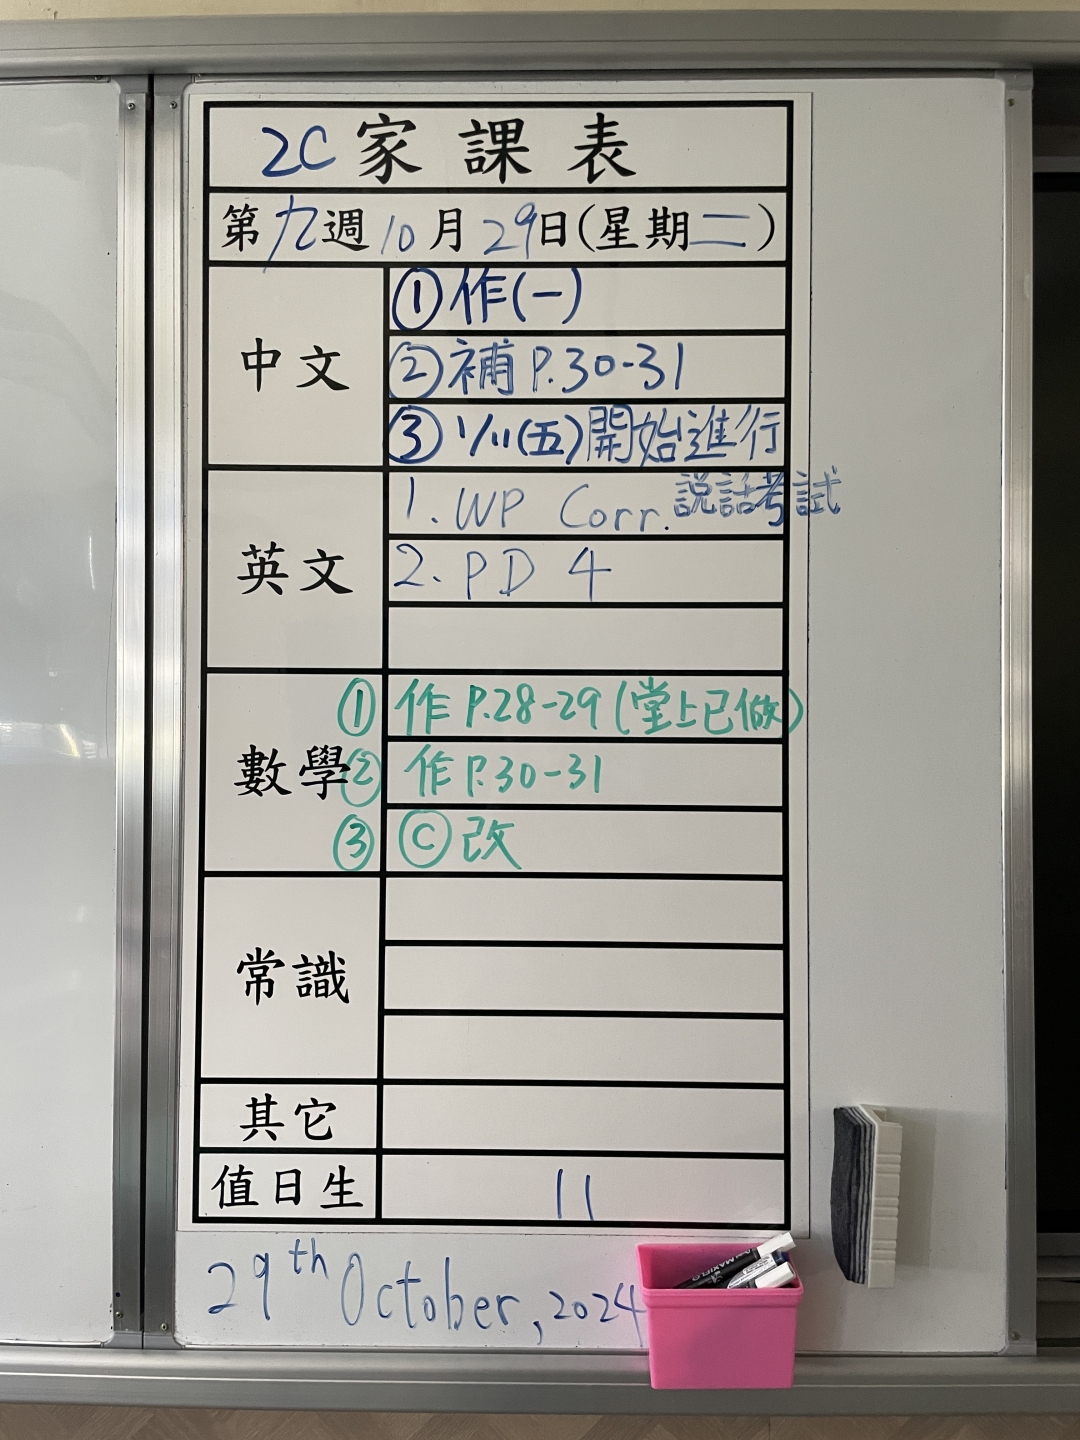 2C家課表
第九週10月29日(星期二)
中文
①作(一)
②補P.30-31
③1/11(五)開始進行
說話考試
英文
1. WP Corr.
2. PD 4
數學
①作P.28-29(堂上已做)
②作P.30-31
③Ⓒ改
常識
其它
值日生
11
29th October, 2024